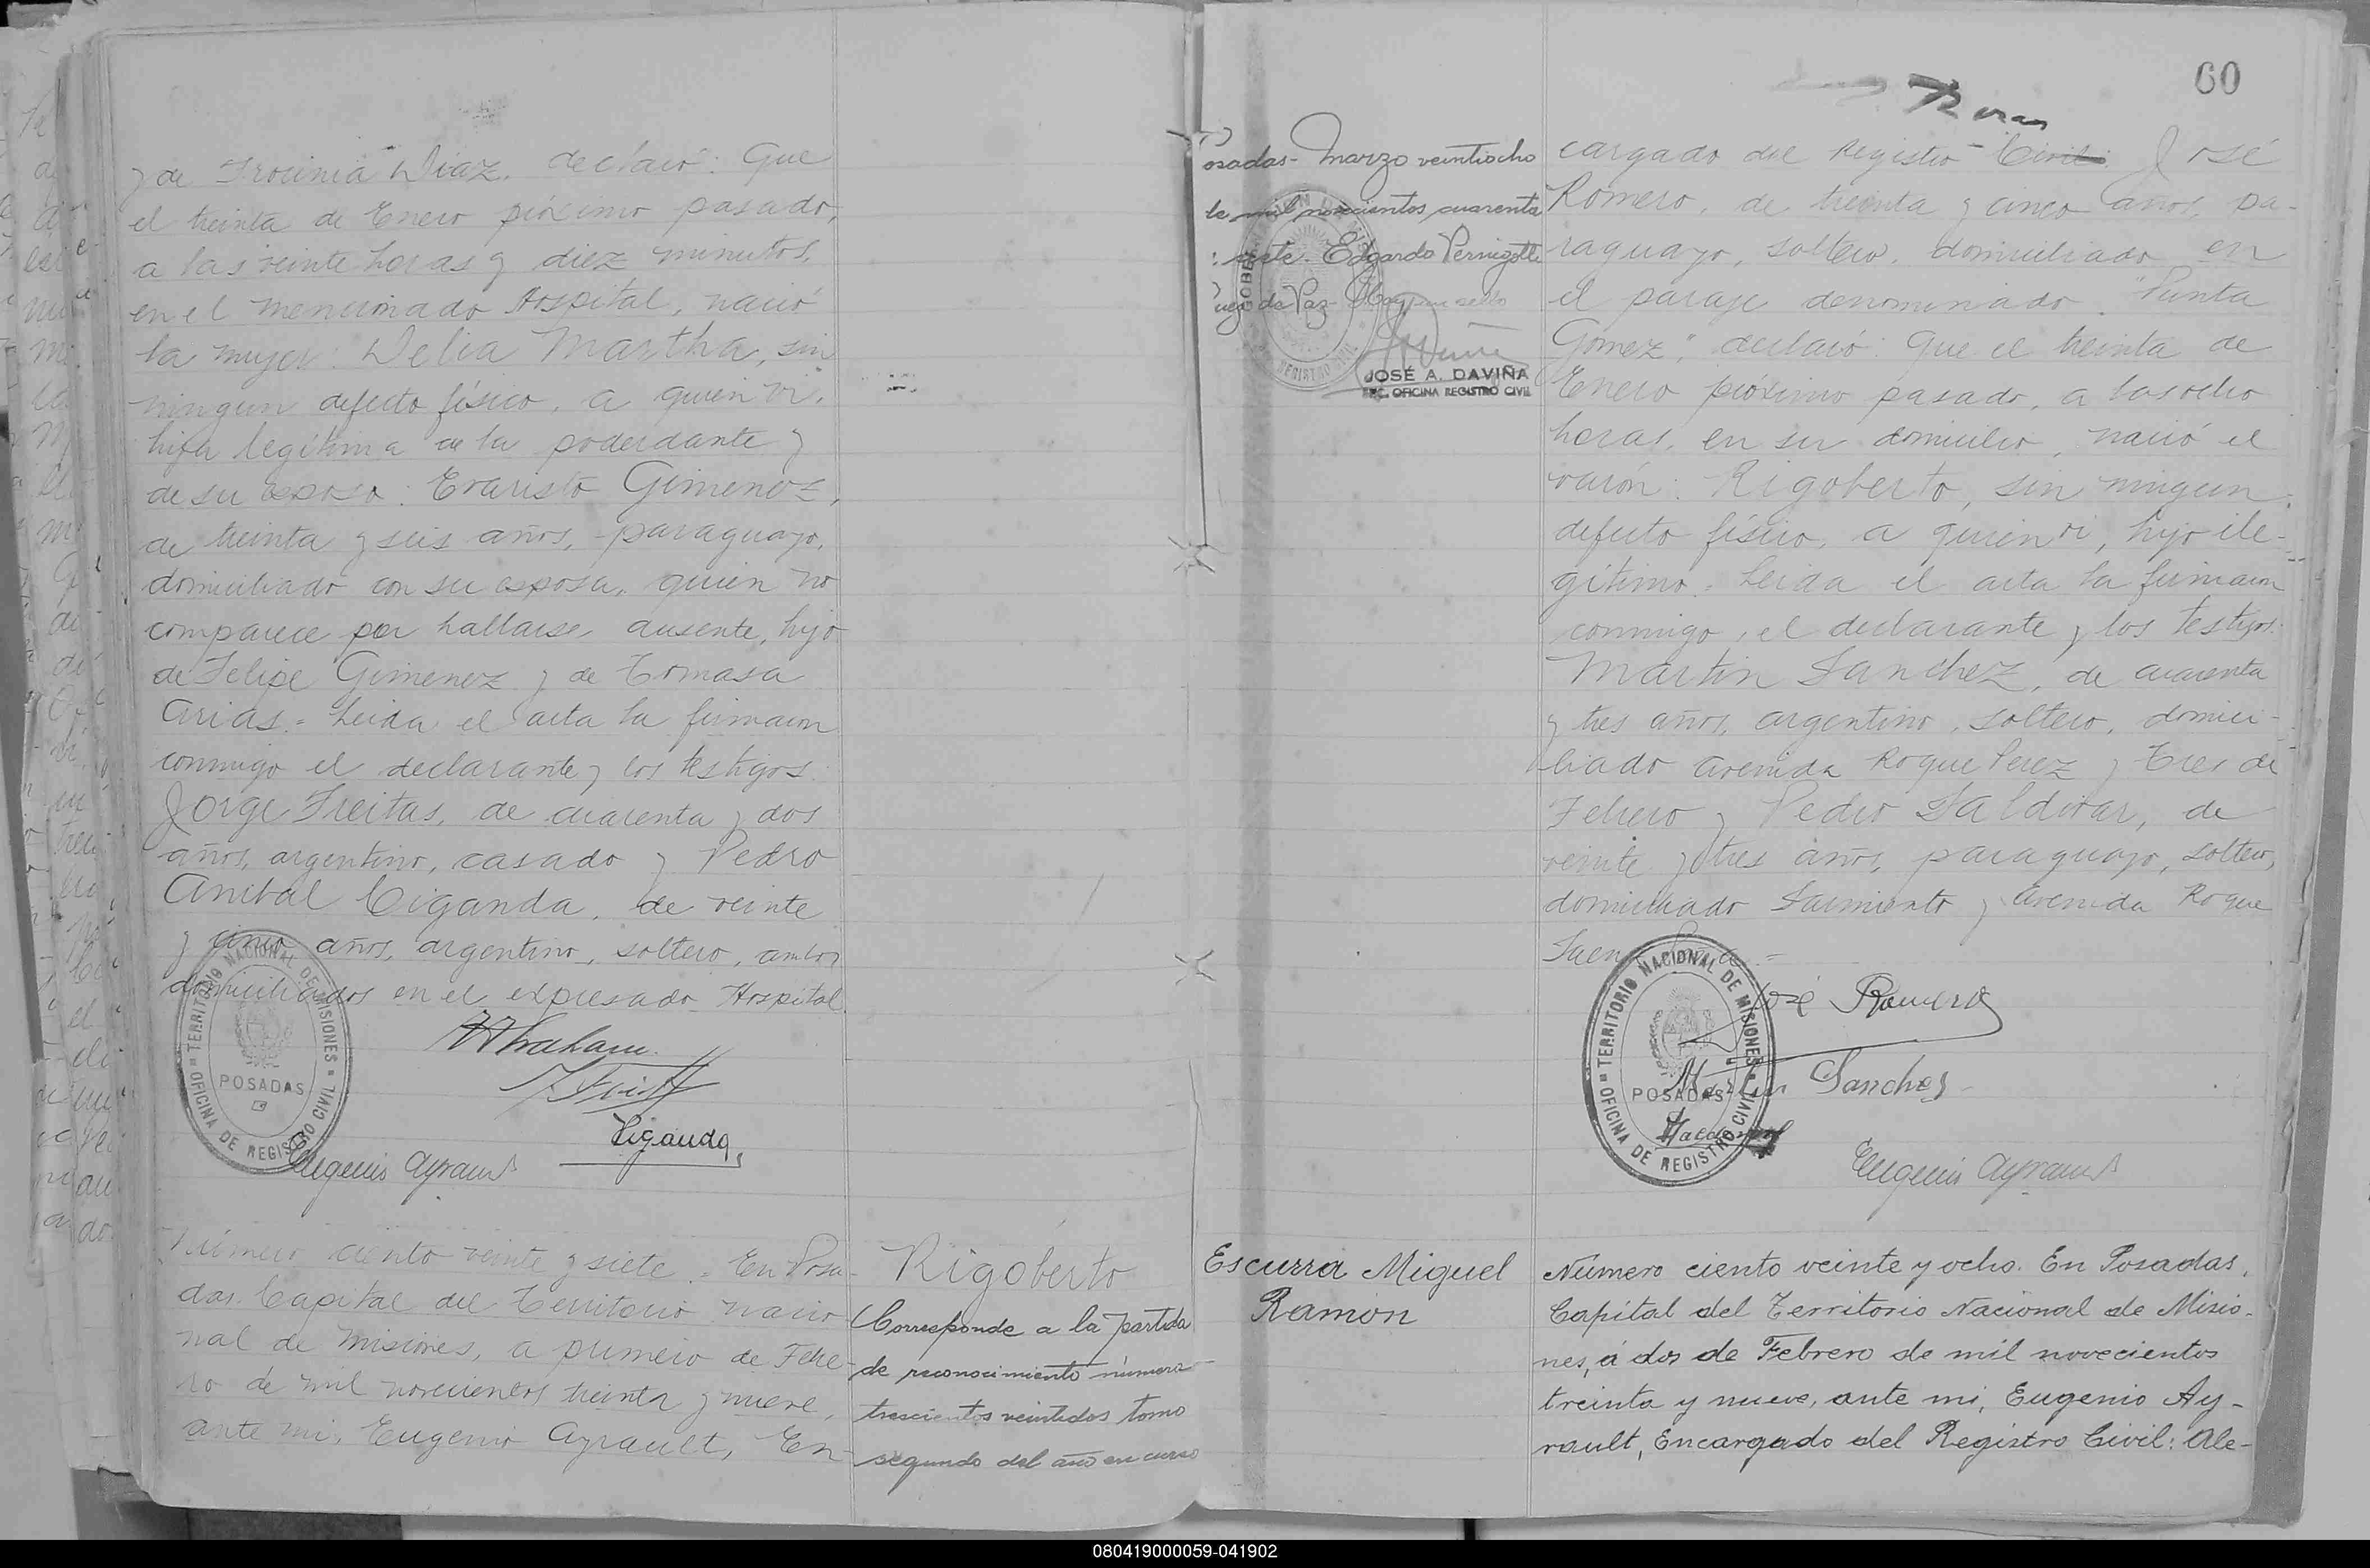 y de Trocinia Diaz, declaró: Que
el treinta de Enero próximo pasado,
a las veinte horas y diez minutos,
en el mencionado Hospital, nació
la mujer: Delia Martha, sin
ningun defecto físico, a quien vi,
hija legítima de la poderdante y
de su esposo: Evaristo Gimenez,
de treinta y seis años, paraguayo,
domiciliado con su esposa, quien no
comparece por hallarse ausente, hijo
de Felipe Gimenez y de Tomasa
Arias.= Leida el acta la firmaron
conmigo el declarante y los testigos:
Jorge Freitas, de cuarenta y dos
años, argentino, casado y Pedro
Anibal Ciganda, de veinte
y cinco años, argentino, soltero, ambos
domiciliados en el expresado Hospital.
TERRITORIO NACIONAL DE MISIONES
POSADAS
OFICINA DE REGISTRO CIVIL
Ciganda
Eugenio Ayrault
Número ciento veinte y siete.= En Posa-
das, Capital del Territorio nacio-
nal de Misiones, a primero de Febre-
ro de mil novecientos treinta y nueve,
ante mi, Eugenio Ayrault, En-
Rigoberto
Corresponde a la partida
de reconocimiento número
trescientos veintidos tomo
segundo del año en curso
Posadas- Marzo veintiocho
de mil novecientos cuarenta
siete- Edgardo
Juez de Paz- Hay un sello
REGISTRO CIVIL
JOSÉ A. DAVIÑA
OFICINA REGISTRO CIVIL
60
cargado del Registro Civil: José
Romero, de treinta y cinco años, pa-
raguayo, soltero, domiciliado en
el paraje denominado "Punta
Gomez", declaró: Que el treinta de
Enero próximo pasado, a las ocho
horas, en su domicilio, nació el
varón: Rigoberto, sin ningun
defecto físico, a quien vi, hijo ile-
gítimo.= Leida el acta la firmaron
conmigo, el declarante y los testigos:
Martin Sanchez, de cuarenta
y tres años, argentino, soltero, domici-
liado Avenida Roque Perez y Tres de
Febrero y Pedro Saldivar, de
veinte y tres años, paraguayo, soltero,
domiciliado Sarmiento y Avenida Roque
Saenz Peña.=
José Romero
TERRITORIO NACIONAL DE MISIONES
POSADAS
OFICINA DE REGISTRO CIVIL
Martin Sanchez
Eugenio Ayrault
Escurra Miguel
Ramón
Número ciento veinte y ocho. En Posadas,
Capital del Territorio Nacional de Misio-
nes, á dos de Febrero de mil novecientos
treinta y nueve, ante mi, Eugenio Ay-
rault, Encargado del Registro Civil: Ale-
080419000059-041902